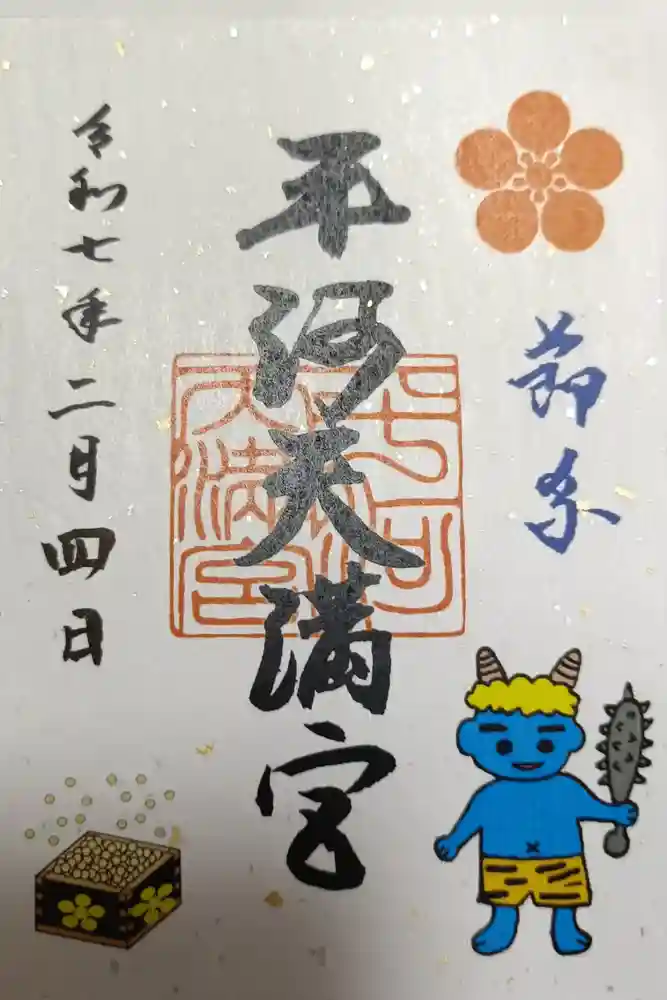 節分
平河天満宮
平河
天満宮
令和七年二月四日